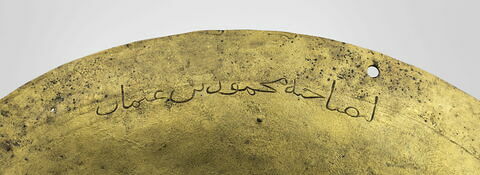 لصاحبه محمود بن عثمان